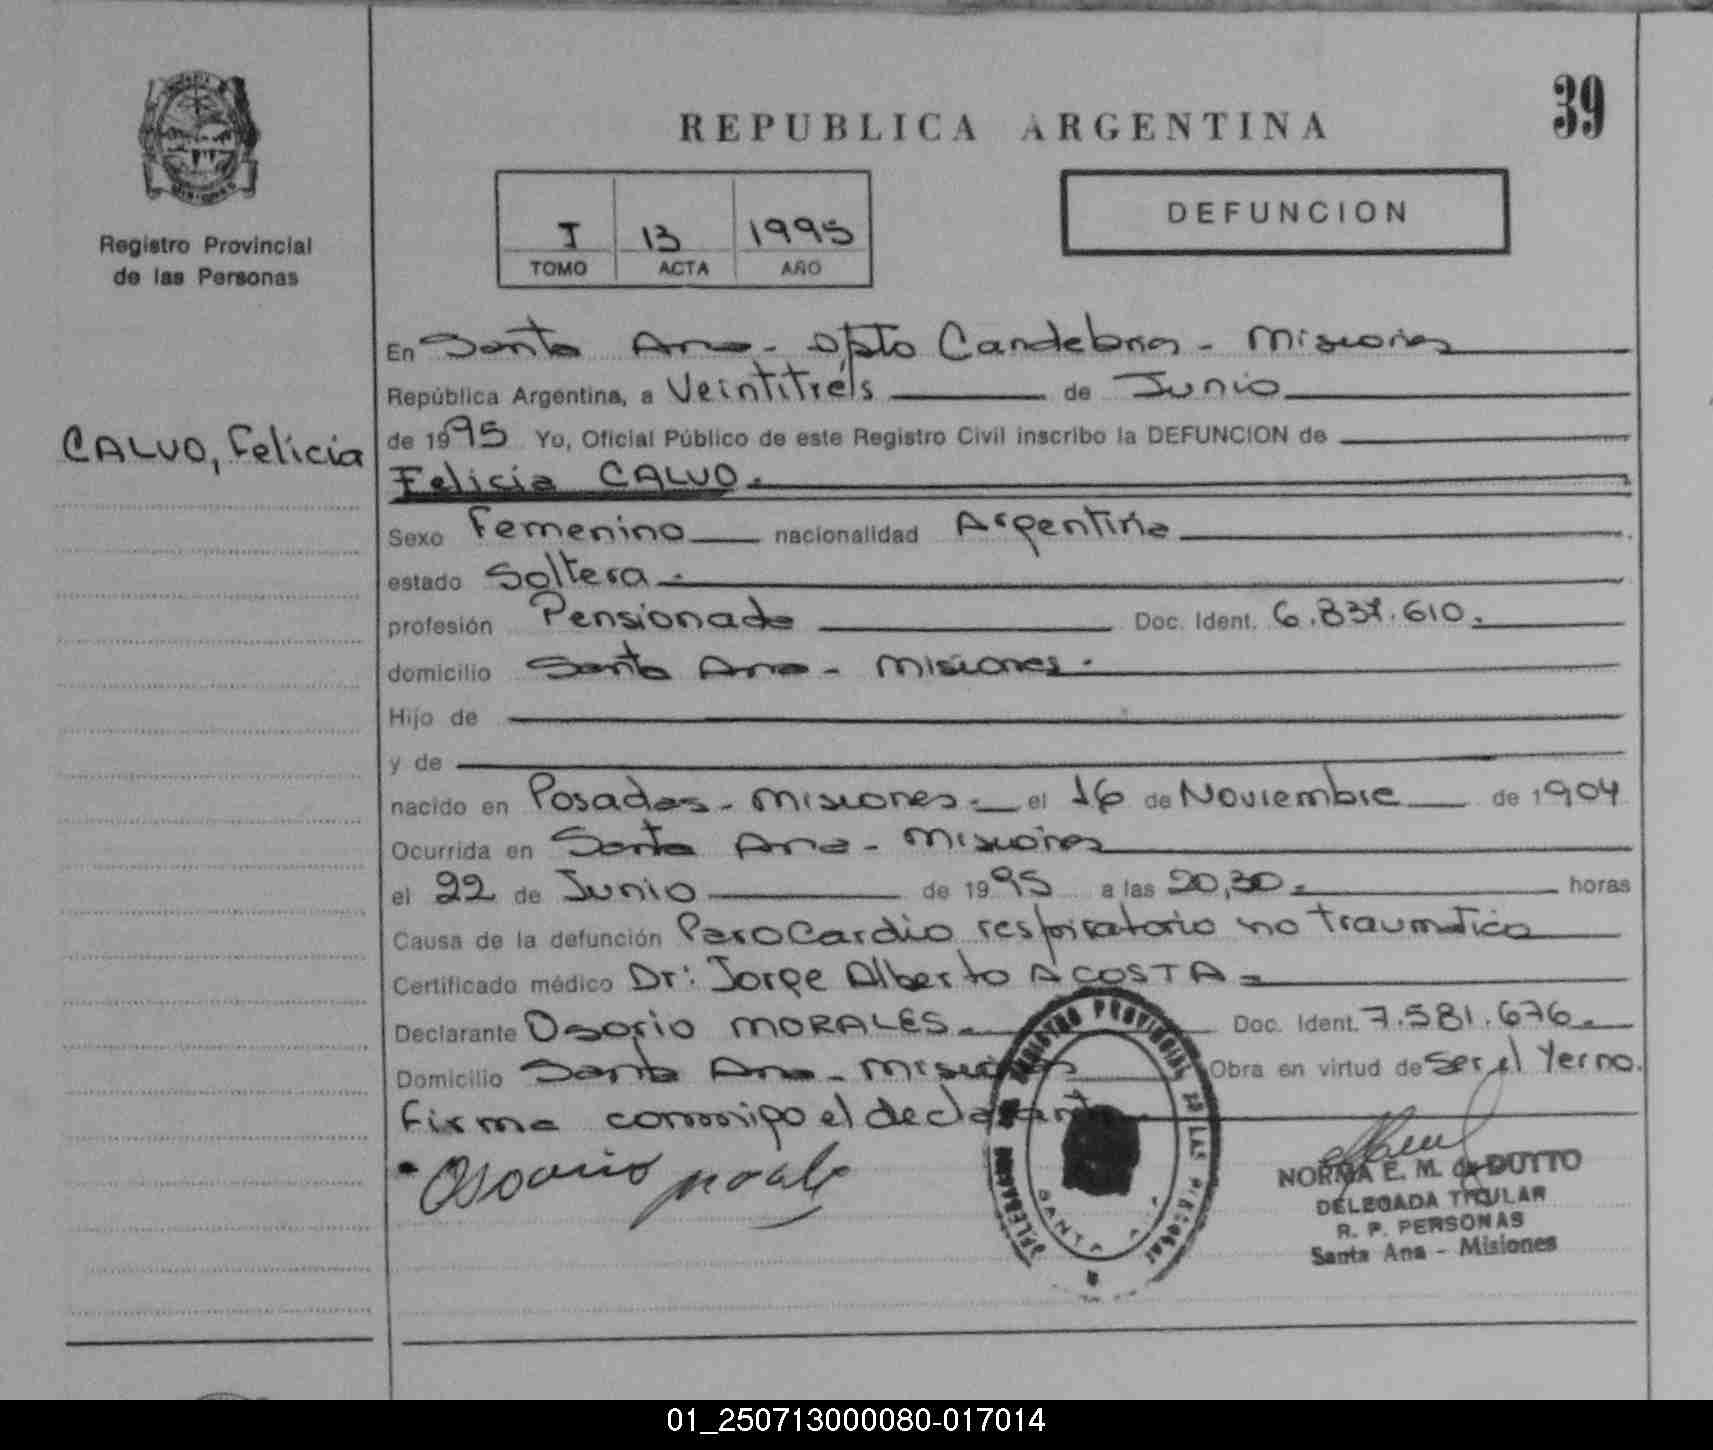 REPUBLICA ARGENTINA
39
Registro Provincial
de las Personas
I 13 1995
TOMO ACTA AÑO
DEFUNCION
En Santa Ana - Dpto Candelaria - Misiones
República Argentina, a Veintitrés de Junio
CALVO, Felicia
de 1995 Yo, Oficial Público de este Registro Civil inscribo la DEFUNCION de
Felicia CALVO.
Sexo Femenino nacionalidad Argentina
estado Soltera.
profesión Pensionada Doc. Ident. 6.837.610.
domicilio Santa Ana - Misiones.
Hijo de
y de
nacido en Posadas - Misiones. el 16 de Noviembre de 1904
Ocurrida en Santa Ana - Misiones
el 22 de Junio de 1995 a las 20,30. horas
Causa de la defunción Paro Cardio respiratorio no traumatico
Certificado médico Dr: Jorge Alberto ACOSTA
Declarante Osorio MORALES. Doc. Ident. 7.581.676.
Domicilio Santa Ana - Misiones Obra en virtud de Ser el Yerno.
Firma conmigo el declarante
Osorio
REGISTRO PROVINCIAL DE LAS PERSONAS
DELEGACION
SANTA
NORMA E. M. de DUTTO
DELEGADA TITULAR
R. P. PERSONAS
Santa Ana - Misiones
01_250713000080-017014